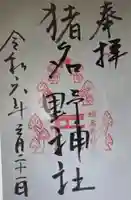 奉拝
猪名野神社
令和六年三月二十一日